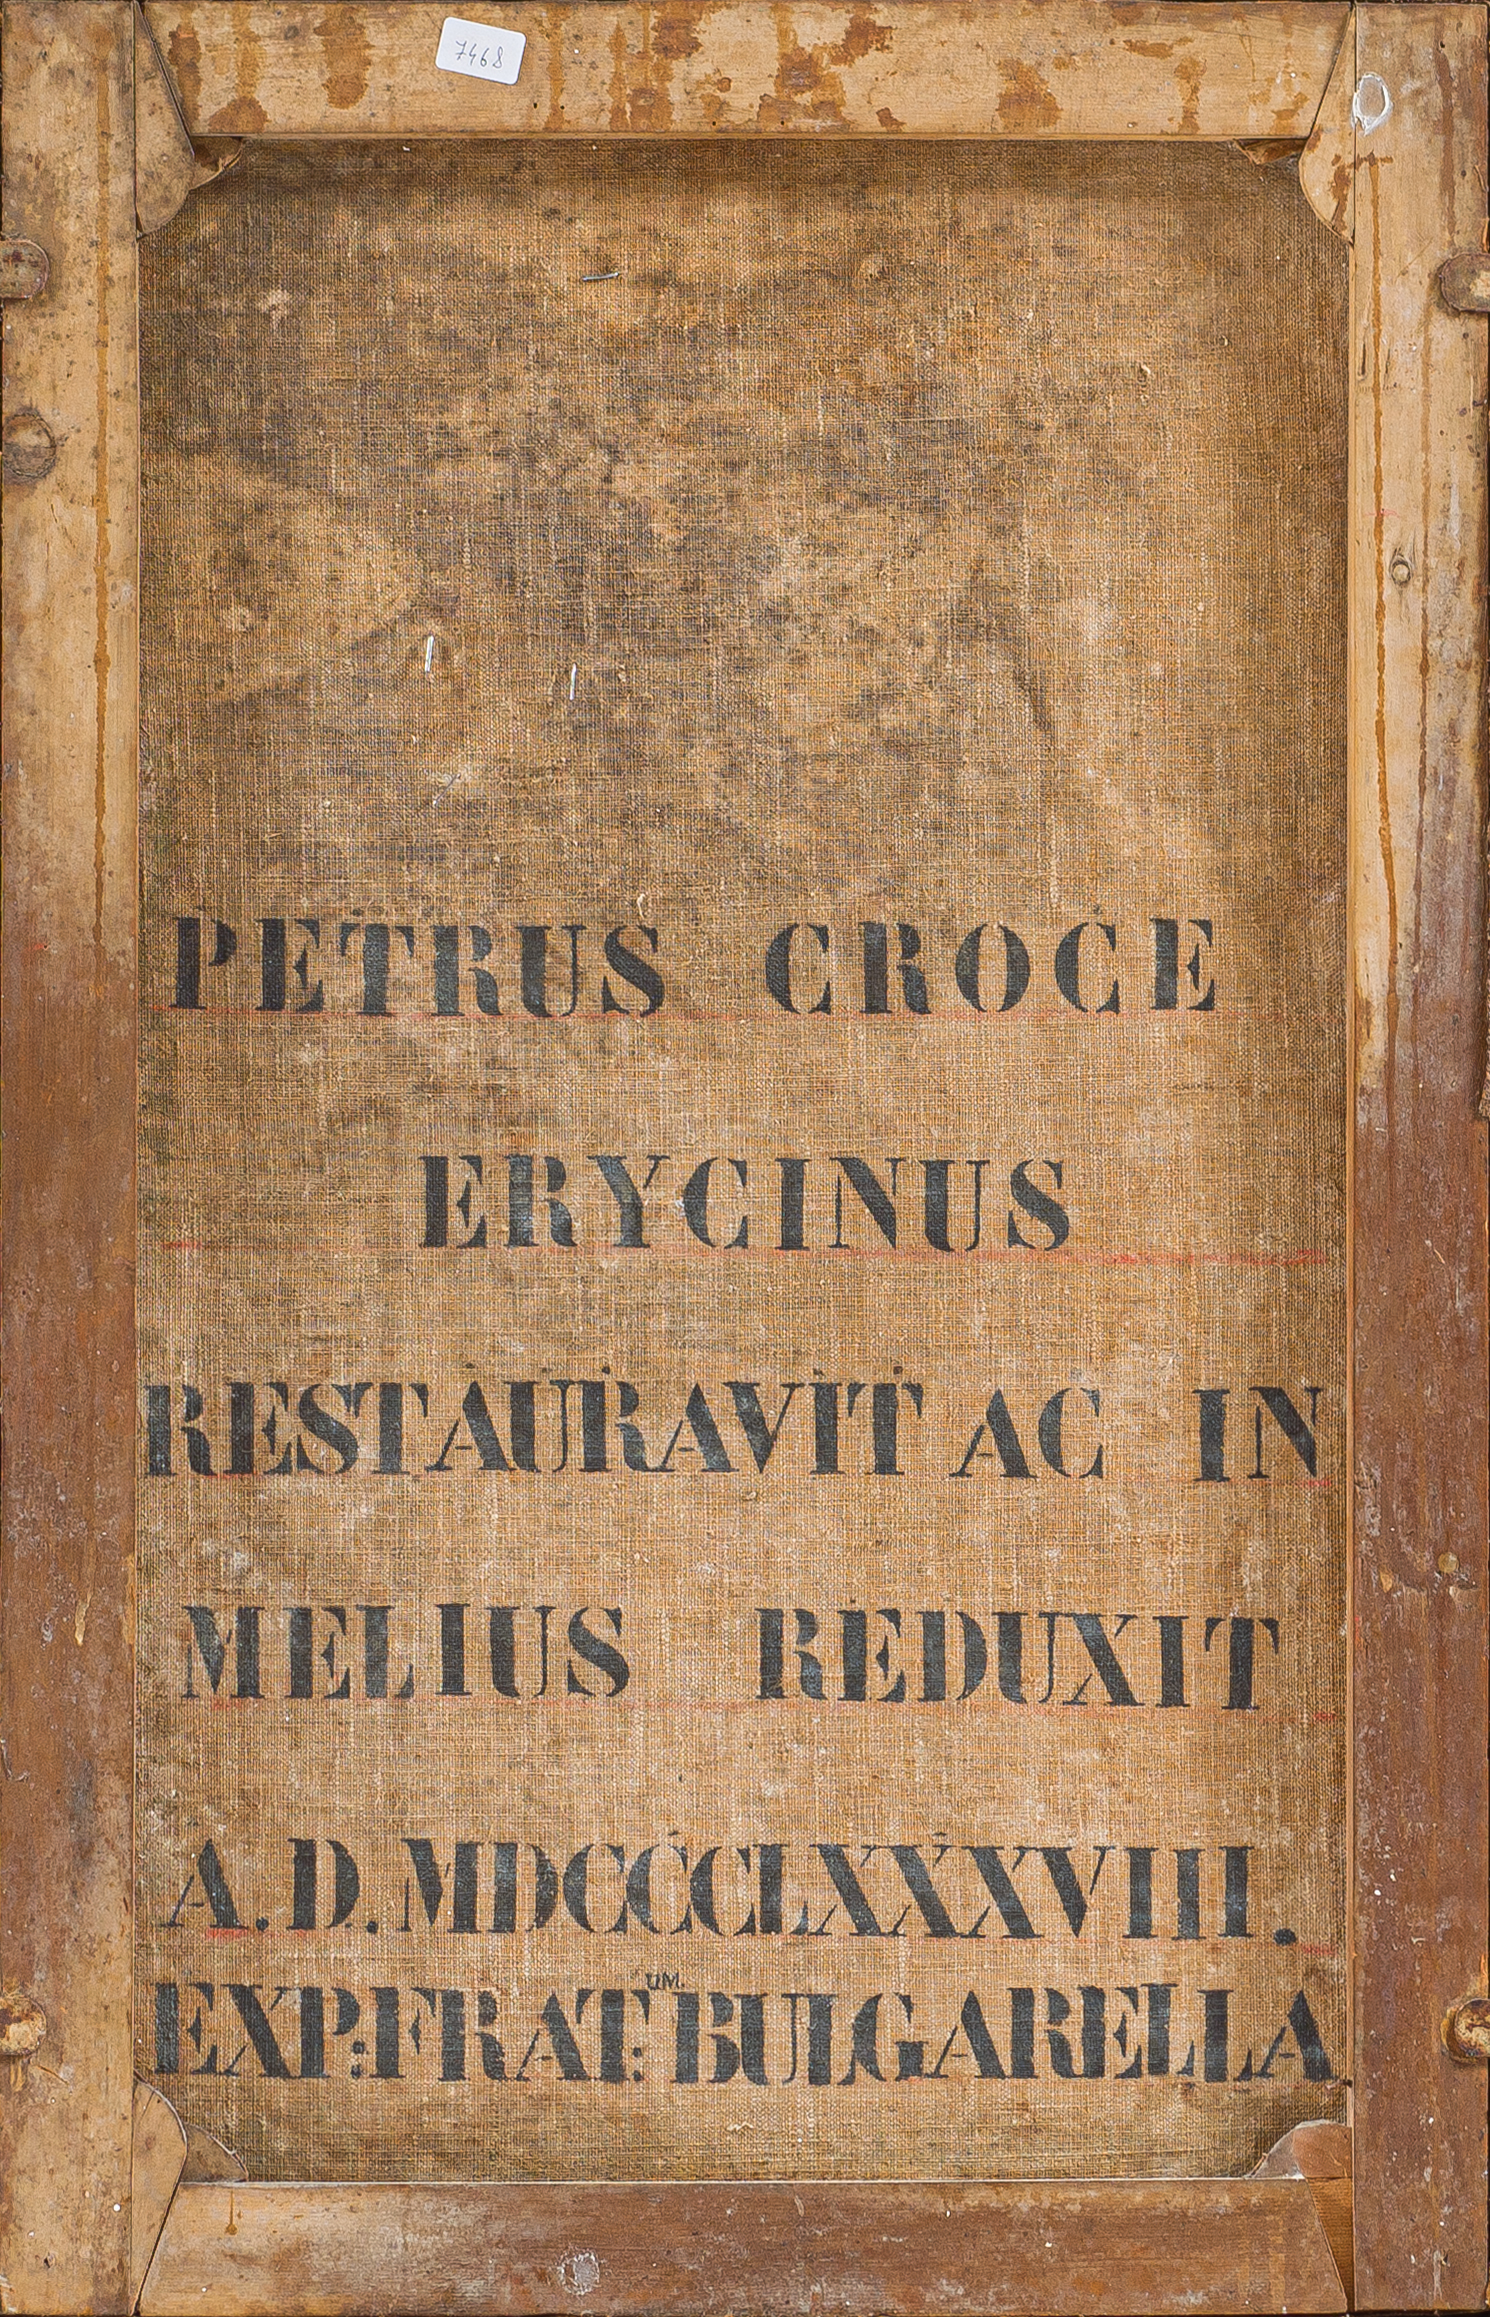 7468
PETRUS CROCE
ERYCINUS
RESTAURAVIT AC IN
MELIUS REDUXIT
A.D.MDCCCLXXXVIII.
EXP:FRAT:UM. BULGARELLA